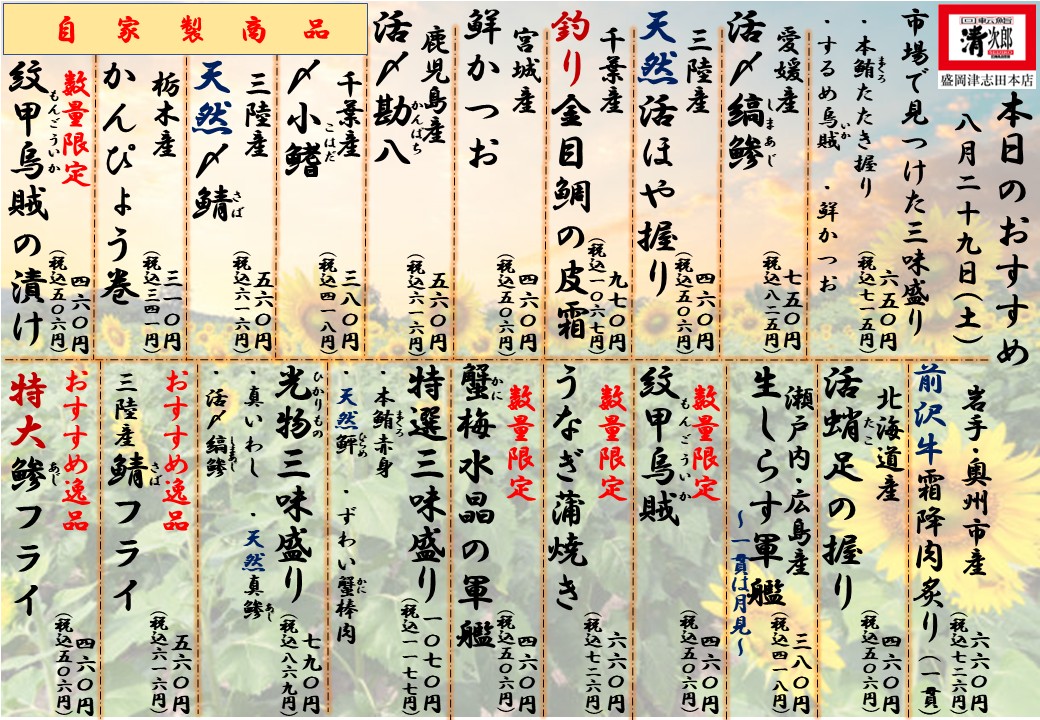 回転鮨
清次郎
盛岡津志田本店
本日のおすすめ
八月二十九日(土)
市場で見つけた三味盛り
・本鮪たたき握り
まぐろ
・するめ烏賊 ・鮮かつお
いか
六五〇円
(税込七一五円)
愛媛産
活〆縞鯵
しまあじ
七五〇円
(税込八二五円)
三陸産
天然活ほや握り
四六〇円
(税込五〇六円)
千葉産
釣り金目鯛の皮霜
九七〇円
(税込一〇六七円)
宮城産
鮮かつお
四六〇円
(税込五〇六円)
鹿児島産
活〆勘八
かんぱち
五六〇円
(税込六一六円)
自家製商品
千葉産
〆小鰭
こはだ
三八〇円
(税込四一八円)
三陸産
天然〆鯖
さば
五六〇円
(税込六一六円)
栃木産
かんぴょう巻
三一〇円
(税込三四一円)
数量限定
紋甲烏賊の漬け
もんごういか
四六〇円
(税込五〇六円)
岩手・奥州市産
前沢牛霜降肉炙り(一貫)
六六〇円
(税込七二六円)
北海道産
活蛸足の握り
たこ
四六〇円
(税込五〇六円)
瀬戸内・広島産
生しらす軍艦
～一貫は月見～
三八〇円
(税込四一八円)
数量限定
紋甲烏賊
もんごういか
四六〇円
(税込五〇六円)
数量限定
うなぎ蒲焼き
六六〇円
(税込七二六円)
数量限定
蟹梅水晶の軍艦
かに
四六〇円
(税込五〇六円)
特選三味盛り
・本鮪赤身 ・ずわい蟹棒肉
まぐろ
かに
・天然鮃
ひらめ
一〇七〇円
(税込一一七七円)
光物三味盛り
ひかりもの
・真いわし ・天然真鯵
あじ
・活〆縞鯵
しまあじ
七九〇円
(税込八六九円)
おすすめ逸品
三陸産鯖フライ
さば
五六〇円
(税込六一六円)
おすすめ逸品
特大鯵フライ
あじ
四六〇円
(税込五〇六円)